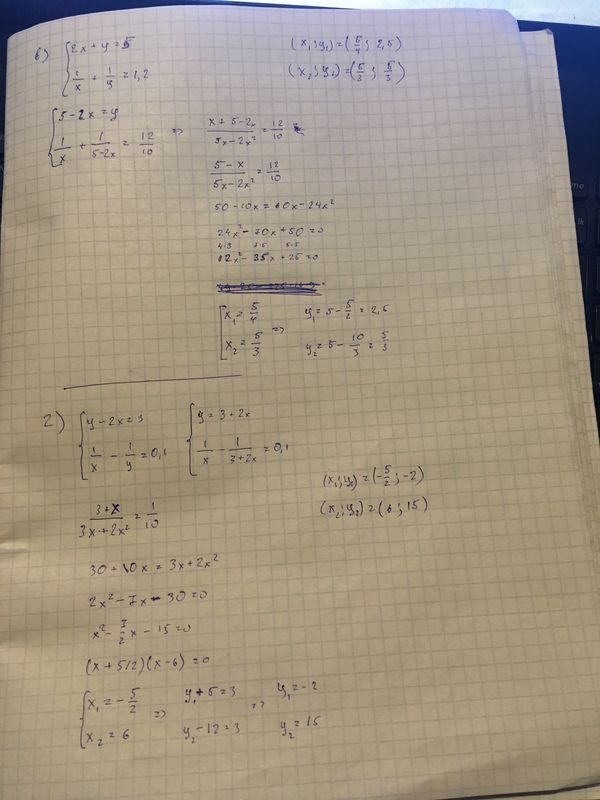 в) { 2x + y = 5
1/x + 1/y = 1,2
(x₁; y₁) = (5/4; 2,5)
(x₂; y₂) = (5/3; 5/3)
{ 5 - 2x = y
1/x + 1/(5-2x) = 12/10 => (x + 5 - 2x)/(5x - 2x²) = 12/10
(5 - x)/(5x - 2x²) = 12/10
50 - 10x = 60x - 24x²
24x² - 70x + 50 = 0
4·3 7·5 5·5
12x² - 35x + 25 = 0
[ x₁ = 5/4 => y₁ = 5 - 5/2 = 2,5
x₂ = 5/3 y₂ = 5 - 10/3 = 5/3
2) { y - 2x = 3 { y = 3 + 2x
1/x - 1/y = 0,1 1/x - 1/(3+2x) = 0,1
(x₁; y₁) = (-5/2; -2)
(x₂; y₂) = (6; 15)
(3 + x)/(3x + 2x²) = 1/10
30 + 10x = 3x + 2x²
2x² - 7x - 30 = 0
x² - 7/2 x - 15 = 0
(x + 5/2)(x - 6) = 0
[ x₁ = -5/2 => y₁ + 5 = 3 => y₁ = -2
x₂ = 6 y₂ - 12 = 3 y₂ = 15